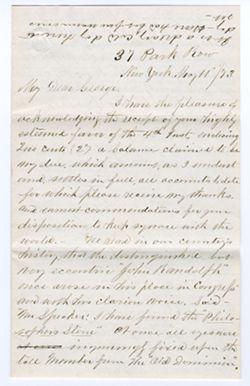 37 Park Row
New York Nov 11th/73
My Dear George,
I have the pleasure of
acknowledging the receipt of your highly
esteemed favor of the 4th Inst, inclosing
Two cents (2¢) a balance claimed to be
my due, which amount, as I understand
settles in full, all accounts to date
for which please receive my thanks,
and earnest commendations for your
disposition to keep square with the
world. We read in our country's
history, that the distinguished but
very eccentric "John Randolph"
once arose in his place in Congress
and with his clarion voice, Said —
"Mr Speaker: I have found the "Philosophers
Stone". At once all eyes were
inquiringly fixed upon the
tall member from the "Old Dominion".